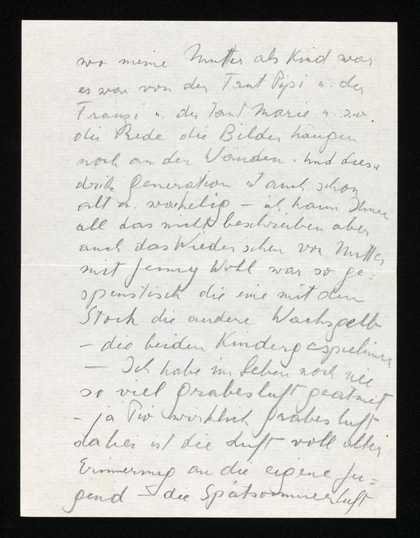 wo meine Mutter als Kind war
es war von der Tant Pepi u. der
Franzi u. der Tant Marie u.
die Rede die Bilder hängen
noch an den Wänden. Und diese
dritte Generation ist auch schon
alt u. wackelig – ich kann Ihnen
all das nicht beschreiben aber
auch das Wiedersehen von Mutter
mit Jenny Woll war so ge-
spenstisch die eine mit dem
Stock die andere Wachsgelb
– die beiden Kindergespielinnen
– Ich habe im Leben noch nie
so viel Grabesluft geatmet
– ja wirklich Grabesluft
dabei ist die Luft voll aller
Erinnerung an die eigene Ju=
gend – die Spätsommerluft